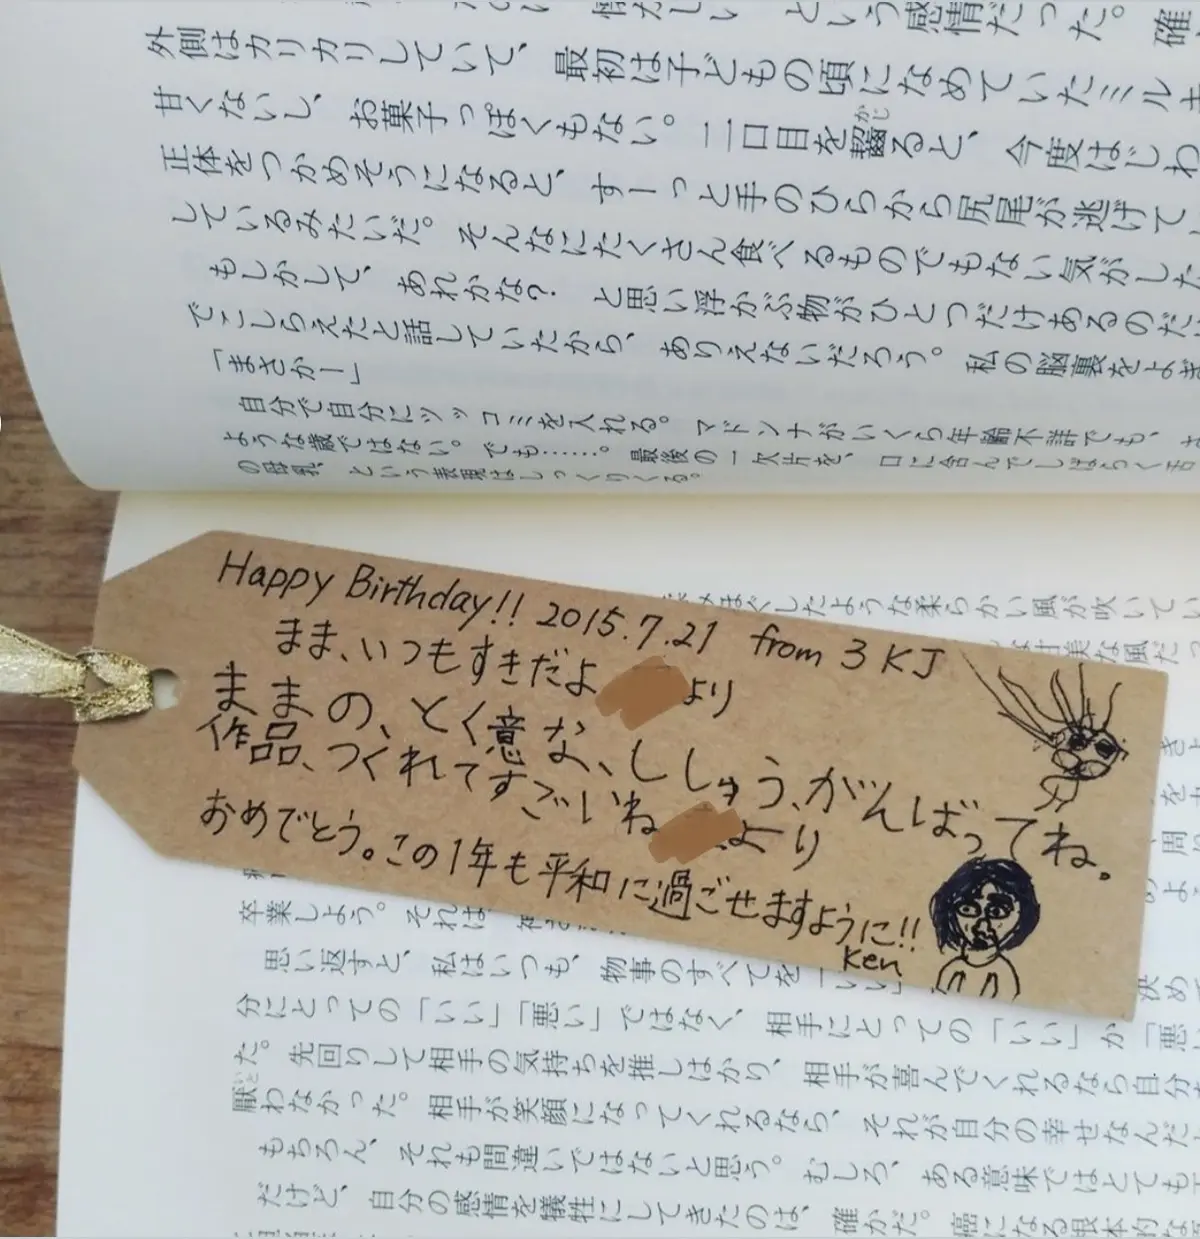 たい、
という感情だった。確
外側はカリカリしていて、最初は子どもの頃になめていたミルキ
甘くないし、お菓子っぽくもない。二口目を齧ると、今度はじわ
かじ
正体をつかめそうになると、すーっと手のひらから尻尾が逃げて
しているみたいだ。そんなにたくさん食べるものでもない気がした
もしかして、あれかな？　と思い浮かぶ物がひとつだけあるのだ
でこしらえたと話していたから、ありえないだろう。私の脳裏をよぎ
「まさかー」
自分で自分にツッコミを入れる。マドンナがいくら年齢不詳でも、
ような歳ではない。でも……。最後の一欠片を、口に含んでしばらく
の母乳、という表現はしっくりくる。
Happy Birthday!! 2015.7.21 from 3KJ
まま、いつもすきだよ
より
ままの、とく意な、ししゅう、がんばってね。
作品、つくれてすごいね
より
おめでとう。この1年も平和に過ごせますように!!
Ken
ほぐしたような柔らかい風が吹いてい
甘美な風だっ
卒業しよう。それは
思い返すと、私はいつも、物事のすべてを「いい」
決めて
分にとっての「いい」「悪い」ではなく、相手にとっての「いい」か「悪い
た。先回りして相手の気持ちを推しはかり、相手が喜んでくれるなら自分
いと
厭わなかった。相手が笑顔になってくれるなら、それが自分の幸せなんだ
もちろん、それも間違いではないと思う。むしろ、ある意味ではとても
だけど、自分の感情を犠牲にしてきたのは、確かだ。癌になる根本的な